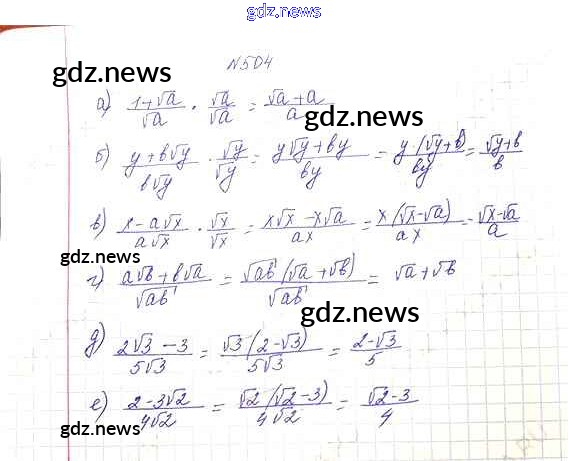 gdz.news
N504
gdz.news
а) (1+√a)/√a · √a/√a = (√a+a)/a
gdz.news
б) (y+b√y)/(b√y) · √y/√y = (y√y+by)/(by) = (y(√y+b))/(by) = (√y+b)/b
gdz.news
в) (x-a√x)/(a√x) · √x/√x = (x√x-x√a)/(ax) = (x(√x-√a))/(ax) = (√x-√a)/a
gdz.news
г) (a√b+b√a)/√ab = (√ab(√a+√b))/√ab = √a+√b
gdz.news
д) (2√3-3)/(5√3) = (√3(2-√3))/(5√3) = (2-√3)/5
gdz.news
е) (2-3√2)/(4√2) = (√2(√2-3))/(4√2) = (√2-3)/4
gdz.news
gdz.news